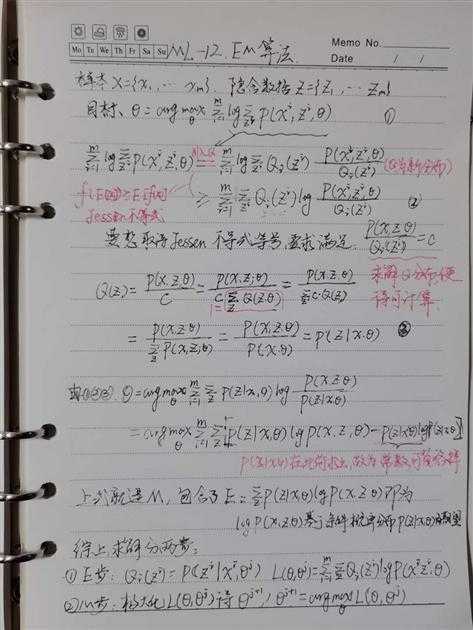 Memo No.
Mo Tu We Th Fr Sa Su ML-12. EM 算法 Date / /
样本 X={x₁, ⋯ xₘ}. 隐含数据 Z={z₁, ⋯ zₘ}
目标. θ = arg max_θ Σ_{i=1}^m log Σ_{zⁱ} P(xⁱ, zⁱ, θ) ①
Σ_{i=1}^m log Σ_{zⁱ} P(xⁱ, zⁱ, θ) = Σ_{i=1}^m log Σ_{zⁱ} Qᵢ(zⁱ) P(xⁱ, zⁱ, θ) / Qᵢ(zⁱ)
f(E(x)) ≥ E(f(x)) ≥ Σ_{i=1}^m Σ_{zⁱ} Qᵢ(zⁱ) log P(xⁱ, zⁱ, θ) / Qᵢ(zⁱ) ②
Jessen 不等式
要想取得 Jessen 不等式等号, 要求满足 P(x, z, θ) / Qᵢ(zⁱ) = C
Q(z) = P(x, z, θ) / C = P(x, z, θ) / C Σ_z Q(z, θ) = P(x, z, θ) / Σ_z C·Q(z)
求解 Q 分布, 便
得可计算.
= P(x, z, θ) / Σ_z P(x, z, θ) = P(x, z, θ) / P(x, θ) = P(z|x, θ) ③
由①②③. θ = arg max_θ Σ_{i=1}^m Σ_z P(z|x, θ) log P(x, z, θ) / P(z|x, θ)
= arg max_θ Σ_{i=1}^m Σ_z [P(z|x, θ) log P(x, z, θ) - P(z|x, θ) log P(z|x, θ)]
P(z|x, θ) 在此前求出, 故为常数, 可
上式就是 M, 包含了 E = Σ_z P(z|x, θ) log P(x, z, θ) 即为
log P(x, z, θ) 基于条件概率分布 P(z|x, θ) 的期望
综上求解分两步:
① E 步: Qᵢ(zⁱ) = P(zⁱ|xⁱ, θʲ) L(θ, θʲ) = Σ_{i=1}^m Σ_z Qᵢ(zⁱ) log P(xⁱ, zⁱ, θ)
② M 步: 极大化 L(θ, θʲ) 得 θʲ⁺¹, θʲ⁺¹ = arg max_θ L(θ, θʲ)